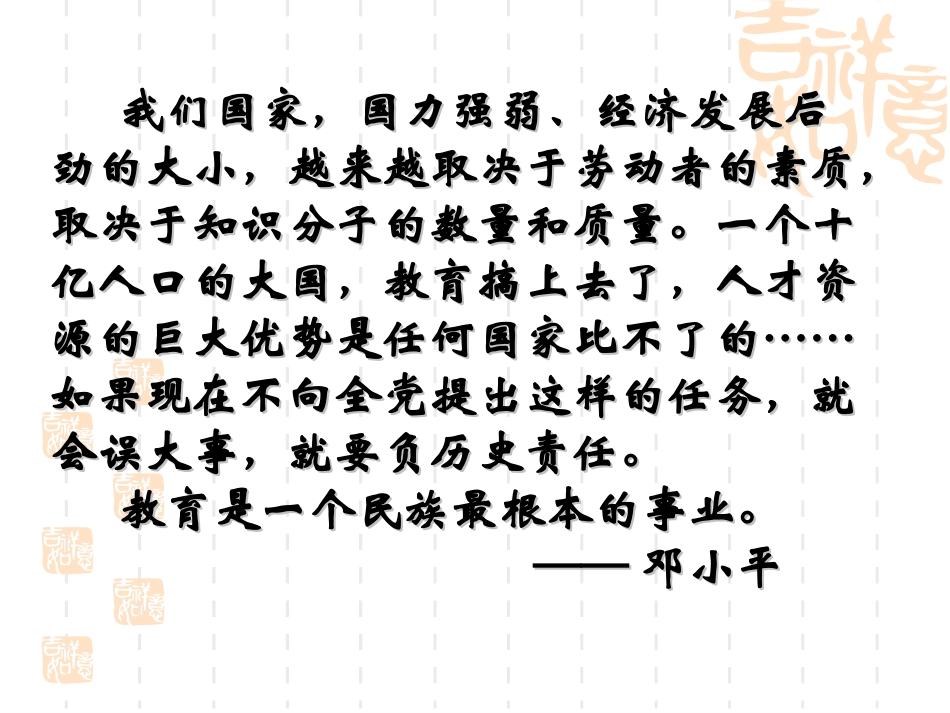 吉祥如意
我们国家，国力强弱、经济发展后
劲的大小，越来越取决于劳动者的素质，
取决于知识分子的数量和质量。一个十
亿人口的大国，教育搞上去了，人才资
源的巨大优势是任何国家比不了的……
如果现在不向全党提出这样的任务，就
会误大事，就要负历史责任。
教育是一个民族最根本的事业。
—— 邓小平
吉祥如意
吉祥如意
吉祥如意
吉祥如意
吉祥如意
吉祥如意